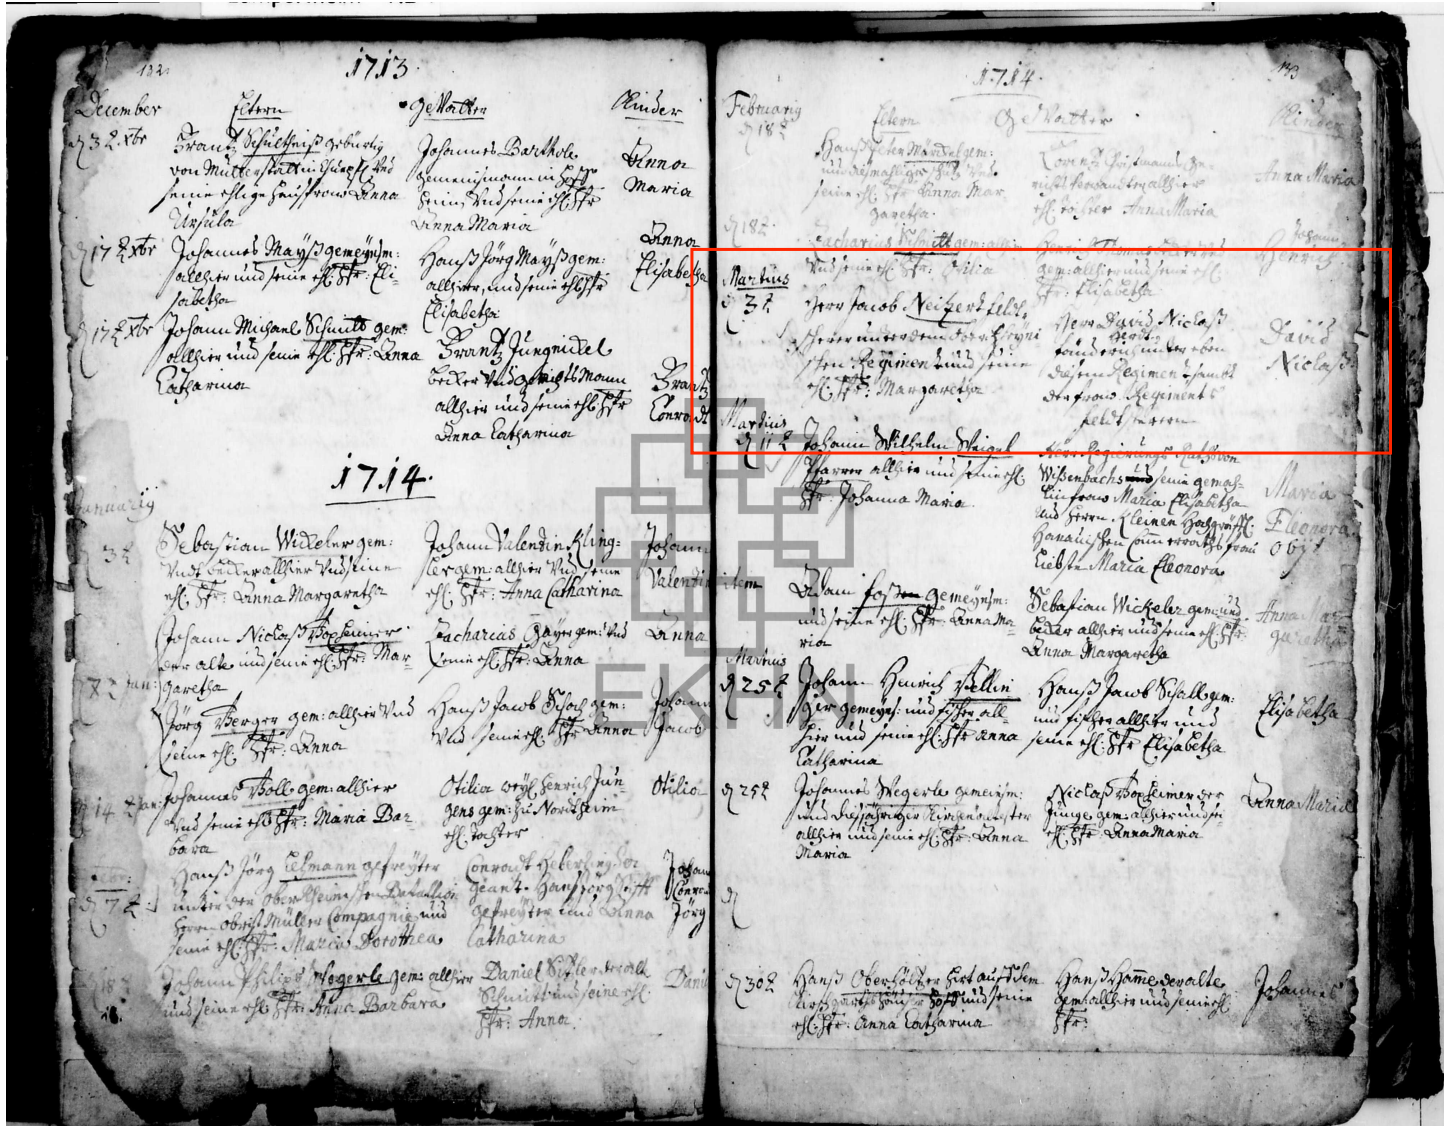 1713
132.
December
Eltern
GeVatter
Kinder
d 3t. Xbr
Frantz Schultheiß gebürtig
von Mutterstatt in Pfaltz Vnd
seine ehlige haußfraw Anna
Ursula
Johannes Barthole
gemeinsmann in
heim, Vnd seine ehl: Hfr
Anna Maria
Anna
Maria
d 17t Xbr
Johannes Mayß gemeinsm:
allhier und seine ehl: Hfr: Eli-
sabetha
Hanß Jörg Mayß gem:
allhier, und seine ehl: Hfr
Elisabetha
Anna
Elisabetha
d 17t Xbr
Johann Michael Schmitt gem:
allhier und seine ehl: Hfr: Anna
Catharina
Frantz Jungnickel
becker Vnd gerichts Mann
allhier und seine ehl: Hfr
Anna Catharina
Frantz
Conradt
1714.
Januarij
d 3t
Sebastian Wickeler gem:
Vndt becker allhier Vnd seine
ehl: Hfr: Anna Margaretha
Johann Valendin Kling-
ler gem: allhier Vnd seine
ehl: Hfr: Anna Catharina
Johann
Valendin
Johann Niclaß
der alte und seine ehl: Hfr: Mar-
garetha
Zacharias Gayer gem: Vnd
seine ehl: Hfr: Anna
Anna
d 7t Jan:
Jörg Berger gem: allhier Vnd
seine ehl: Hfr: Anna
Hanß Jacob Schoch gem:
Vnd seine ehl: Hfr Anna
Johann
Jacob
d 14t Jan:
Johannes Boll gem: allhier
Vnd seine ehl: Hfr: Maria Bar-
bara
Otilia weyl: Henrich Jun-
gens gem: zu Nordheim
ehl: Tochter
Otilia
d 7t
Hanß Jörg Lehmann gefreyter
unter der Ober Rheinischen Battallion
Herrn obrist Müller Compagnie und
seine ehl: Hfr: Maria Dorothea
Conradt Heberling Ser
geant. Hanß Jörg
gefreyter und Anna
Catharina
Johann
Conrad
Jörg
d 18t
Johann Philips Wegerle gem: allhier
und seine ehl: Hfr: Anna Barbara
Daniel Sittler der alte
Schmitt und seine ehl:
Hfr: Anna
Daniel
1714.
133
Februarij
Eltern
GeVatter
Kinder
d 18t
Hanß Peter gem:
seine ehl: Hfr Anna Mar
garetha.
Lorentz
allhier
ehl: Tochter Anna Maria
Anna Maria
d 18t
Zacharias Schmitt gem: allhier
Vnd seine ehl: Hfr: Otilia
gem: allhier und seine ehl:
Hfr: Elisabetha
Johann
Henrich
Martius
d 3t
Herr Jacob Neitzert feldt-
scherer unter dem ober Rheyni
schen Regiment und seine
ehl: Hfr: Margaretha
Herr David Niclaß
fänderich unter eben
diesem Regiment sambt
der fraw Regiments
feldtschererin
David
Niclaß
Martius
d 11t
Johann Wilhelm Weigel
Pfarrer allhier und seine ehl:
Hfr: Johanna Maria
Herr Regierungs Raths von
Wißenbachs seine gemah-
lin fraw Maria Elisabetha
und Herrn Kleinen Hochgräffl:
Hanauischen Cammerraths fraw
Liebste Maria Eleonora
Maria
Eleonora
obijt
item
Adam gemeinsm:
und seine ehl: Hfr Anna Ma-
ria
Sebastian Wickeler gem: und
becker allhier und seine ehl: Hfr:
Anna Margaretha
Anna Mar-
garetha
Martius
d 25t
Johann Henrich
ger gemeins: und fischer all-
hier und seine ehl: Hfr Anna
Catharina
Hanß Jacob Schall gem:
und fischer allhier und
seine ehl: Hfr Elisabetha
Elisabetha
d 25t
Johannes Wegerle gemeinsm:
und dießjähriger Kirchenältester
allhier und seine ehl: Hfr: Anna
Maria
Niclaß der
Junge gem: allhier und sei-
ehl: Hfr Anna Maria
Anna Maria
d
d 30t
Hanß Oberhöltzer hirt auff dem
hoff und seine
ehl: Hfr: Anna Catharina
Hanß Hamme der alte
gem: allhier und seine ehl:
Hfr:
Johannes
EKHN